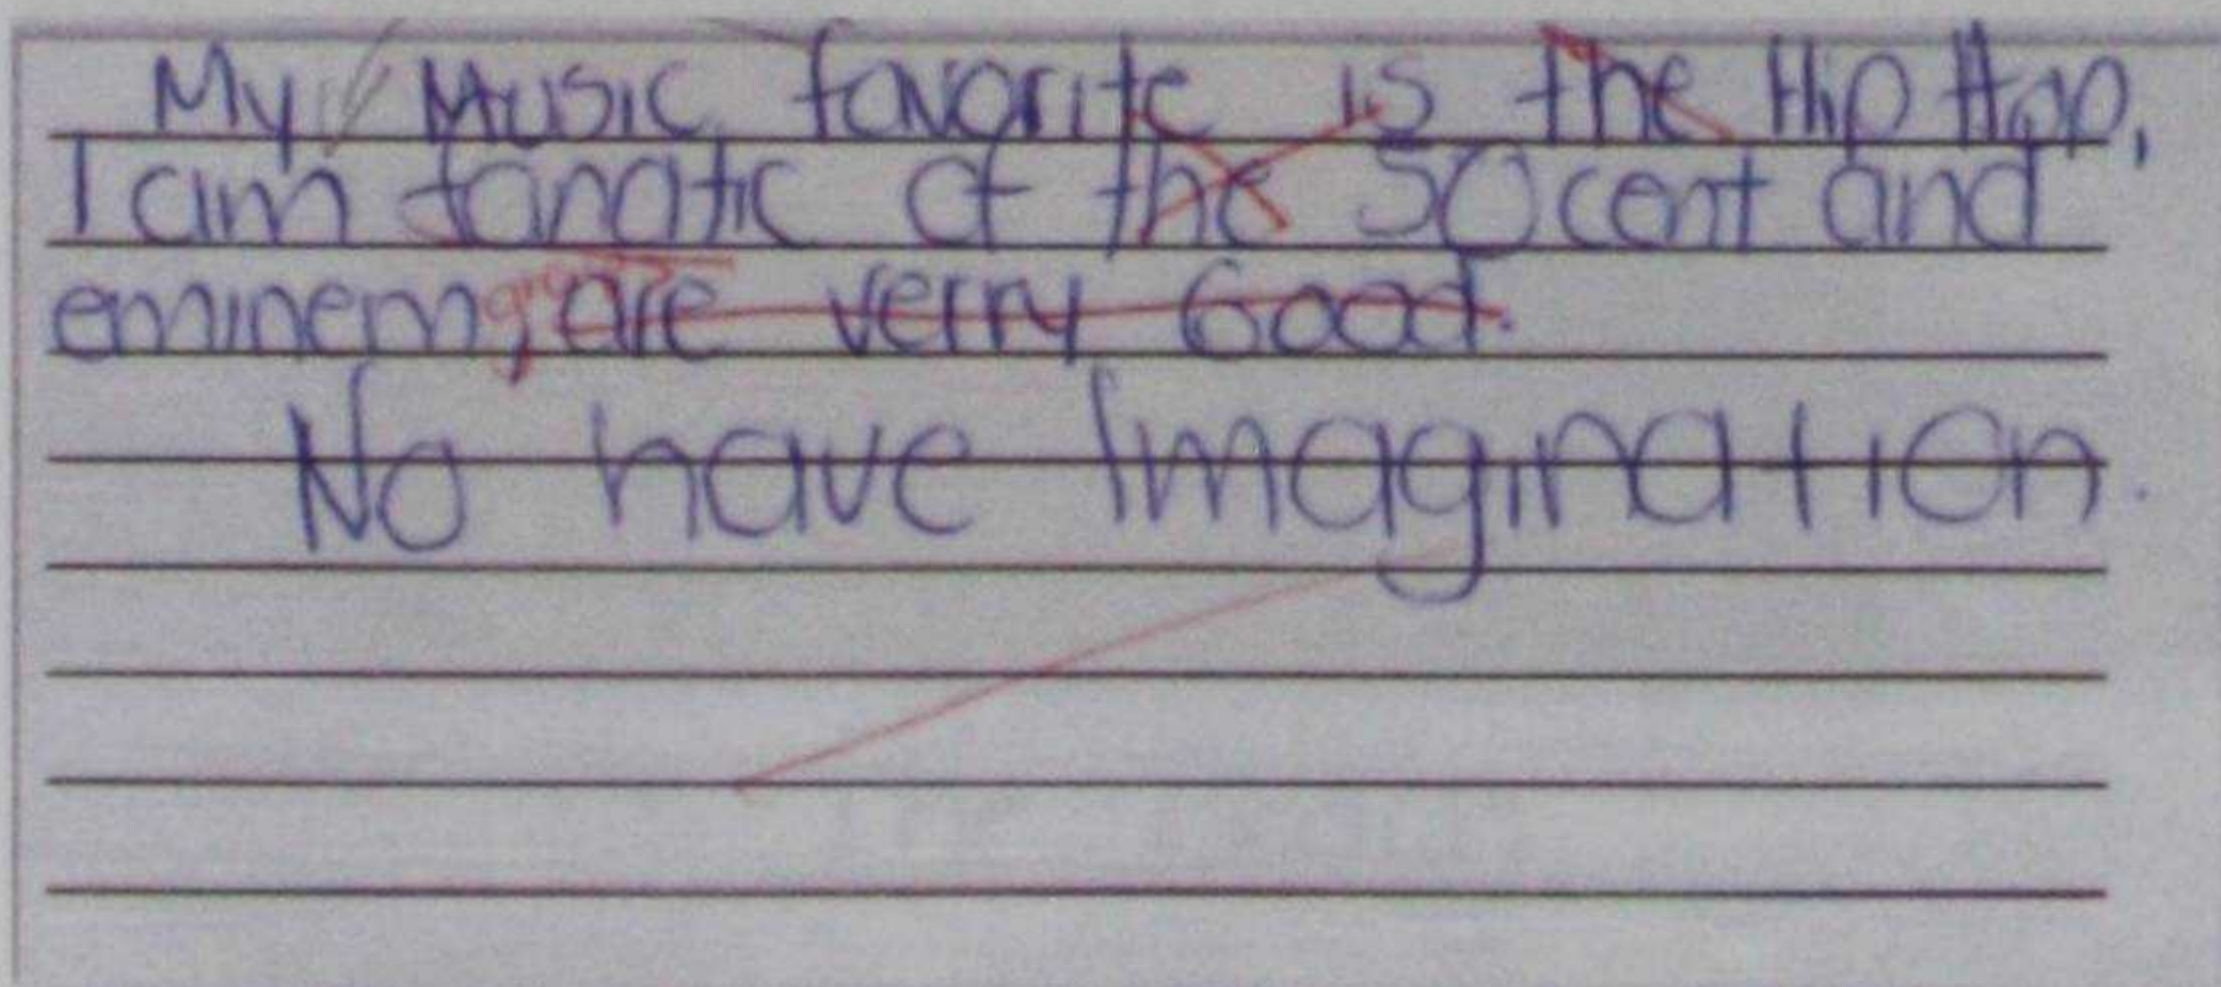 My Music favorite is the Hip Hop,
I am fanatic of the 50 cent and
eminem, are verry Good.
No have Imagination.